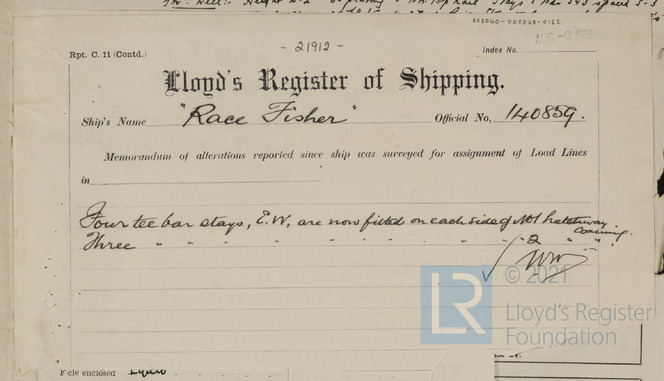 008060-008068-0162
- 21912 -
AUG -9
Rpt. C. 11 (Contd.)
Index No.
Lloyd's Register of Shipping.
Ship's Name "Race Fisher" Official No. 140859.
Memorandum of alterations reported since ship was surveyed for assignment of Load Lines
in
Four tee bar stays, E.W, are now fitted on each side of No1 hatchway coaming.
Three " " " " " " " " " " 2 " " .
© 2021
LR
Lloyd's Register
Foundation
enclosed